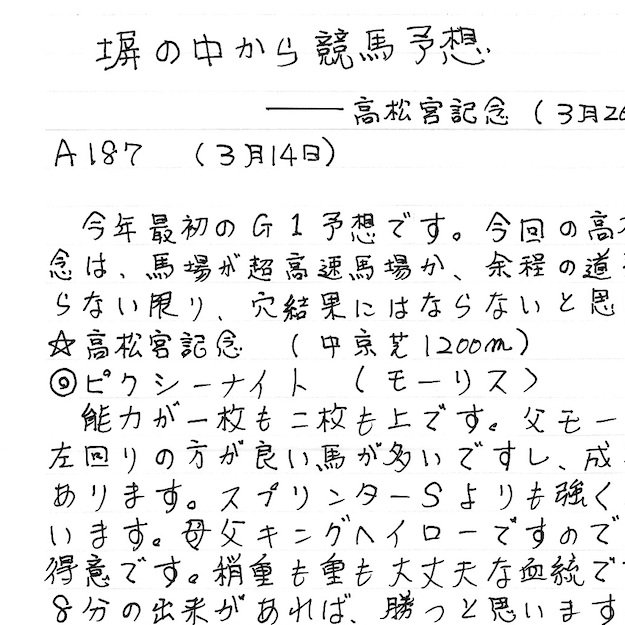 塀の中から競馬予想
――高松宮記念(3月26
A187 (3月14日)
今年最初のG1予想です。今回の高
念は、馬場が超高速馬場か、余程の道
らない限り、穴結果にはならないと思
☆高松宮記念 (中京芝1200m)
◎ピクシーナイト (モーリス)
能力が一枚も二枚も上です。父モー
左回りの方が良い馬が多いですし、成
あります。スプリンターSよりも強く
います。母父キングヘイローですので
得意です。稍重も重も大丈夫な血統で
8分の出来があれば、勝つと思います